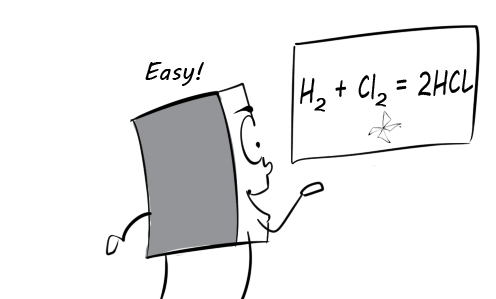 Easy!
H₂ + Cl₂ = 2HCL